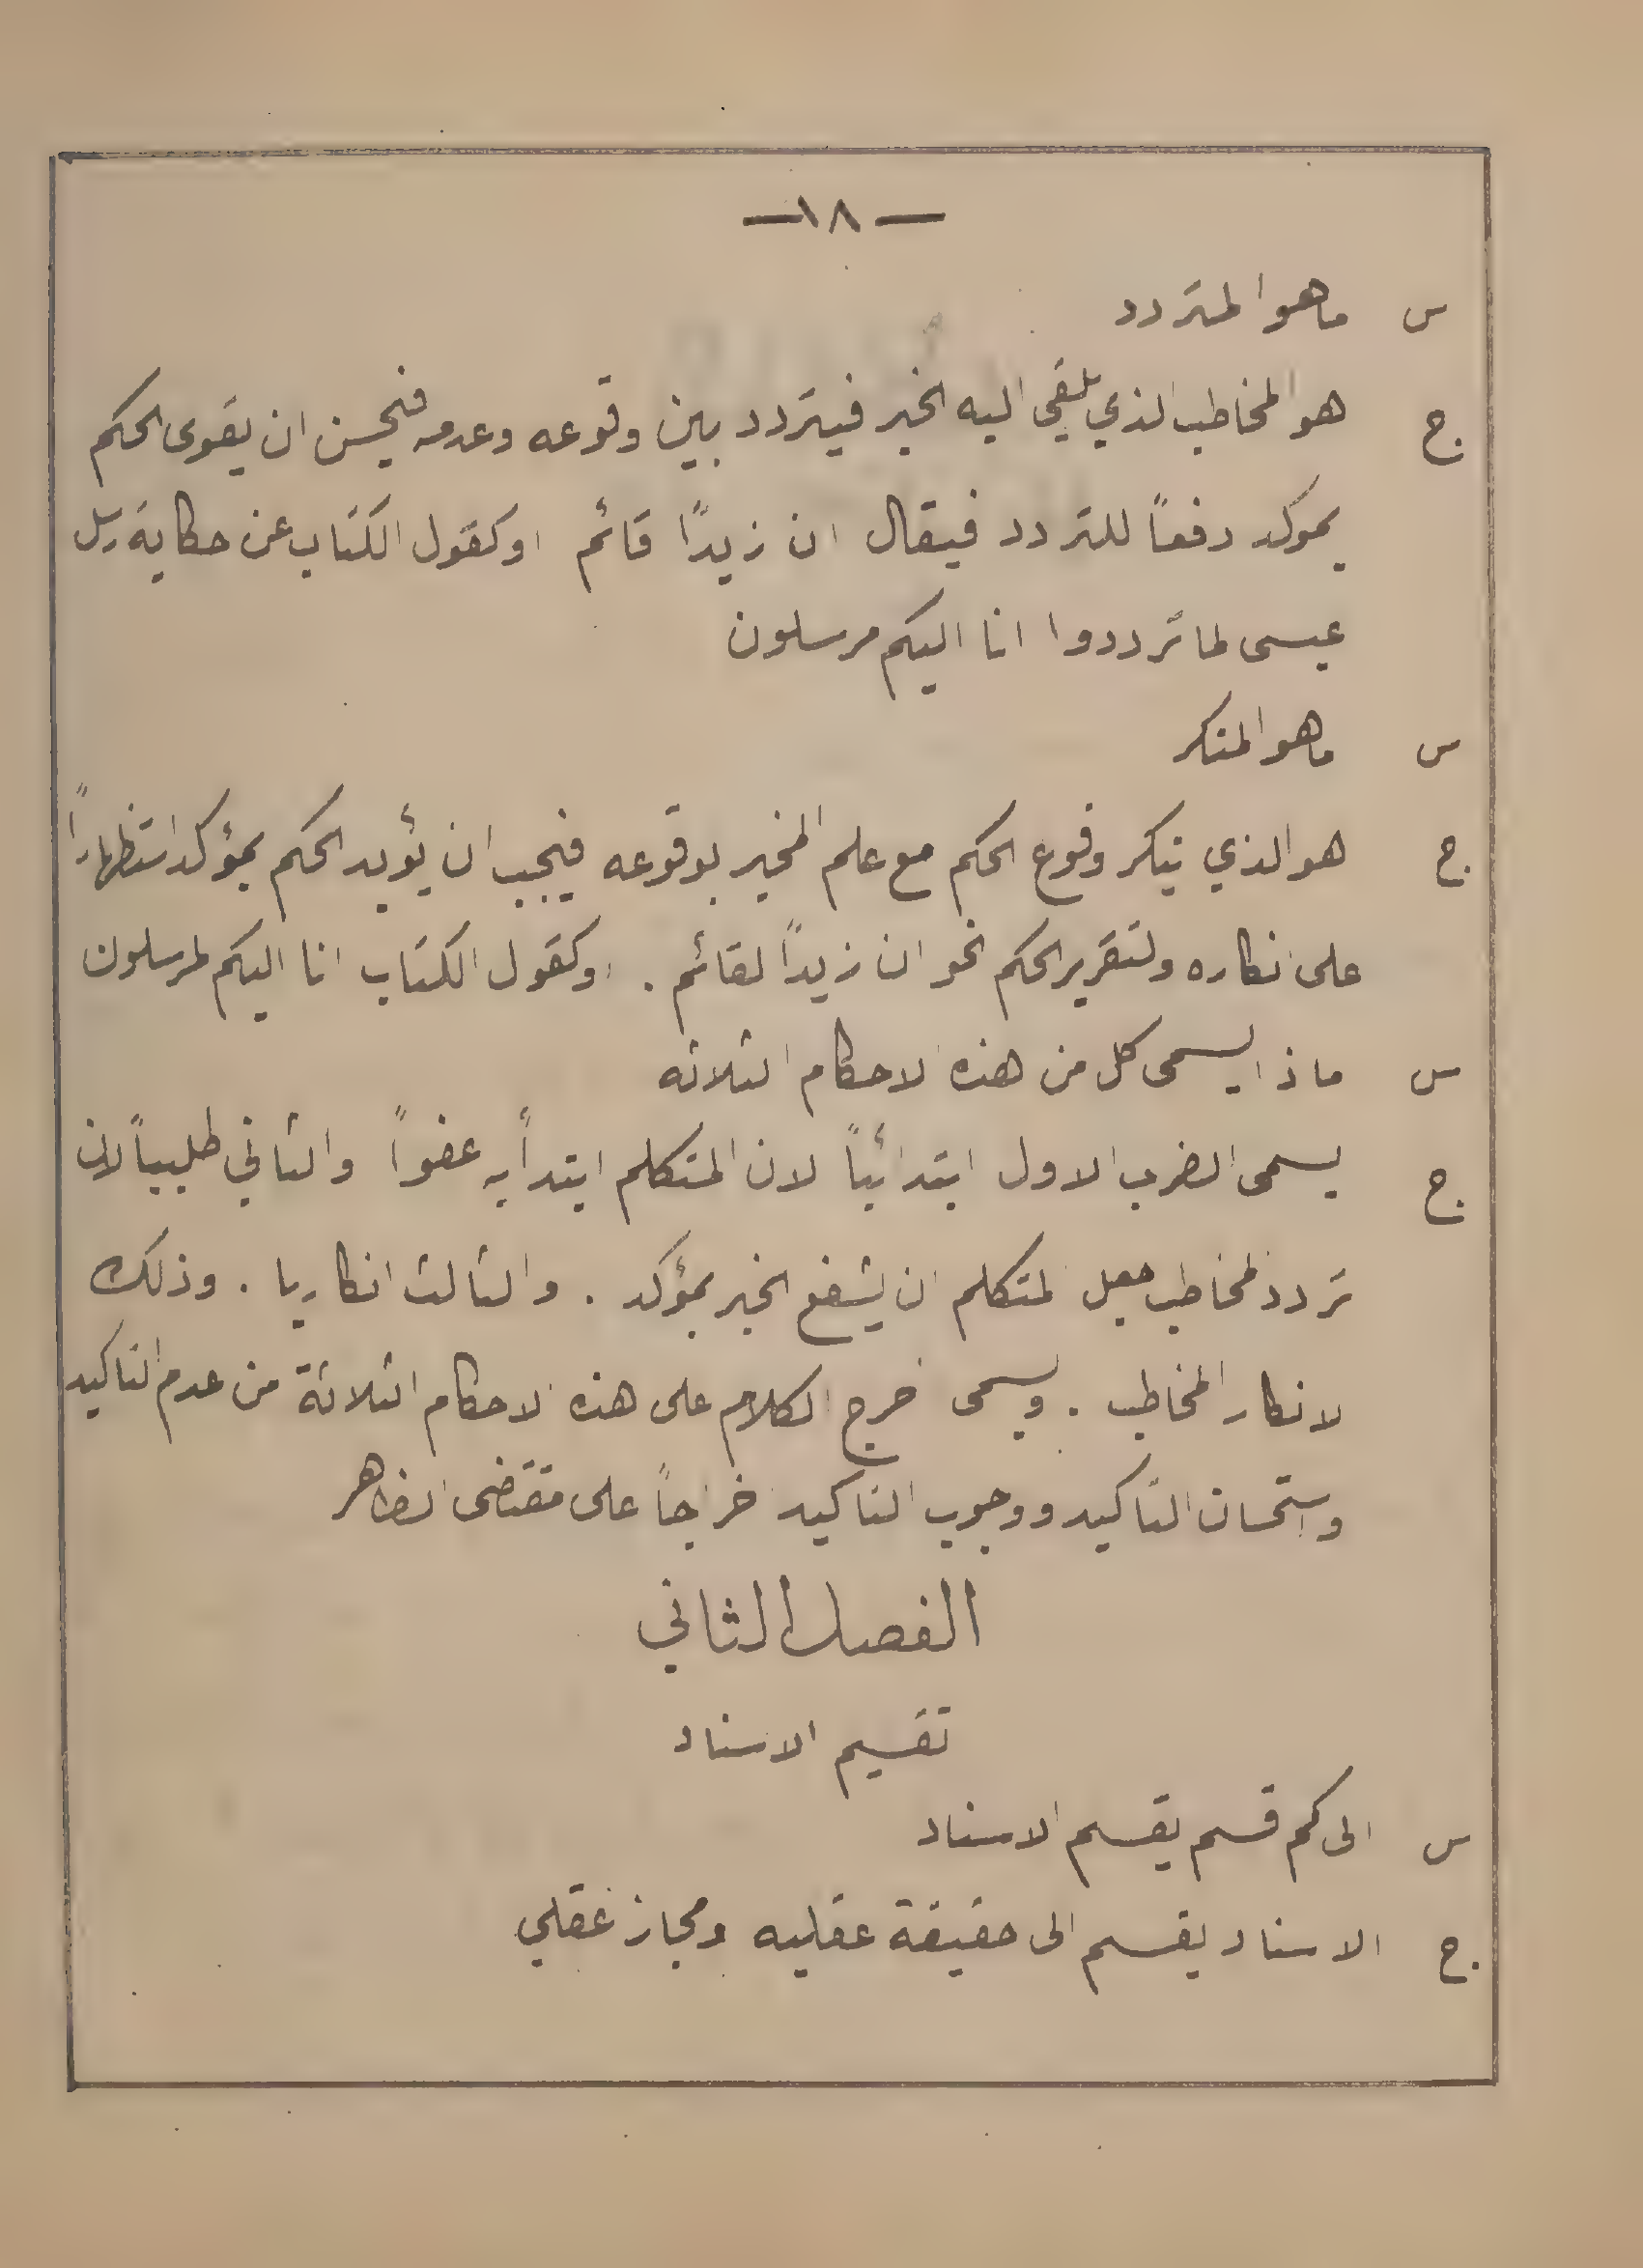 —١٨—
س ما هو المتردد
ج هو المخاطب الذي يلقي اليه الخبر فيتردد بين وقوعه وعدمه فيحسن ان يقوى الحكم
بموكد دفعاً للتردد فيقال ان زيداً قائم اوكقول الكتاب عن حكاية رسل
عيسى لما ترددوا انا اليكم مرسلون
س ما هو المنكر
ج هو الذي ينكر وقوع الحكم مع علم المخبر بوقوعه فيجب ان يؤيد الحكم بمؤكد استظهاراً
على انكاره ولتقرير الحكم نحو ان زيداً لقائم . اوكقول الكتاب انا اليكم لمرسلون
س ماذا يسمى كل من هذه الاحكام الثلاثه
ج يسمى الضرب الاول ابتدائياً لان المتكلم ابتدأ به عفواً والثاني طلبياً لان
تردد المخاطب جعل المتكلم ان يشفع الخبر بمؤكد . والثالث انكاريا . وذلك
لانكار المخاطب . ويسمى اخراج الكلام على هذه الاحكام الثلاثة من عدم التاكيد
واستحسان التاكيد ووجوب التاكيد اخراجاً على مقتضى الظاهر
الفصل الثاني
تقسيم الاسناد
س الى كم قسم يقسم الاسناد
ج الاسناد يقسم الى حقيقة عقليه ومجاز عقلي